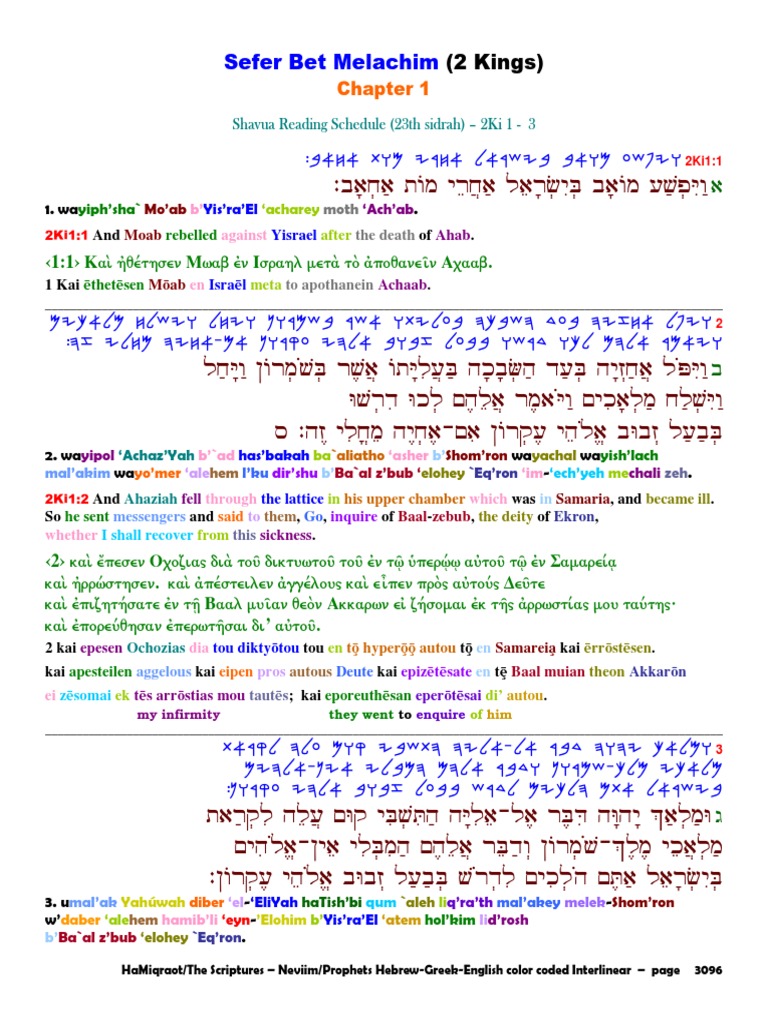 Sefer Bet Melachim (2 Kings)
Chapter 1
Shavua Reading Schedule (23th sidrah) – 2Ki 1 - 3
2Ki1:1 𐤅𐤉𐤐𐤔𐤏 𐤌𐤅𐤀𐤁 𐤁𐤉𐤔𐤓𐤀𐤋 𐤀𐤇𐤓𐤉 𐤌𐤅𐤕 𐤀𐤇𐤀𐤁:
א וַיִּפְשַׁע מוֹאָב בְּיִשְׂרָאֵל אַחֲרֵי מוֹת אַחְאָב:
1. wayiph’sha` Mo’ab b’Yis’ra’El ‘acharey moth ‘Ach’ab.
2Ki1:1 And Moab rebelled against Yisrael after the death of Ahab.
‹1:1› Καὶ ἠθέτησεν Μωαβ ἐν Ισραηλ μετὰ τὸ ἀποθανεῖν Αχααβ.
1 Kai ēthetēsen Mōab en Israēl meta to apothanein Achaab.
2 𐤅𐤉𐤐𐤋 𐤀𐤇𐤆𐤉𐤄 𐤁𐤏𐤃 𐤄𐤔𐤁𐤊𐤄 𐤁𐤏𐤋𐤉𐤕𐤅 𐤀𐤔𐤓 𐤁𐤔𐤌𐤓𐤅𐤍 𐤅𐤉𐤇𐤋 𐤅𐤉𐤔𐤋𐤇 𐤌𐤋𐤀𐤊𐤉𐤌
𐤅𐤉𐤀𐤌𐤓 𐤀𐤋𐤄𐤌 𐤋𐤊𐤅 𐤃𐤓𐤔𐤅 𐤁𐤁𐤏𐤋 𐤆𐤁𐤅𐤁 𐤀𐤋𐤄𐤉 𐤏𐤒𐤓𐤅𐤍 𐤀𐤌-𐤀𐤇𐤉𐤄 𐤌𐤇𐤋𐤉 𐤆𐤄:
ב וַיִּפֹּל אֲחַזְיָה בְּעַד הַשְּׂבָכָה בַּעֲלִיָּתוֹ אֲשֶׁר בְּשֹׁמְרוֹן וַיָּחַל
וַיִּשְׁלַח מַלְאָכִים וַיֹּאמֶר אֲלֵהֶם לְכוּ דִרְשׁוּ
בְּבַעַל זְבוּב אֱלֹהֵי עֶקְרוֹן אִם־אֶחְיֶה מֵחֳלִי זֶה: ס
2. wayipol ‘Achaz’Yah b’`ad has’bakah ba`aliatho ‘asher b’Shom’ron wayachal wayish’lach
mal’akim wayo’mer ‘alehem l’ku dir’shu b’Ba`al z’bub ‘elohey `Eq’ron ‘im-‘ech’yeh mechali zeh.
2Ki1:2 And Ahaziah fell through the lattice in his upper chamber which was in Samaria, and became ill.
So he sent messengers and said to them, Go, inquire of Baal-zebub, the deity of Ekron,
whether I shall recover from this sickness.
‹2› καὶ ἔπεσεν Οχοζιας διὰ τοῦ δικτυωτοῦ τοῦ ἐν τῷ ὑπερῴῳ αὐτοῦ τῷ ἐν Σαμαρείᾳ
καὶ ἠρρώστησεν. καὶ ἀπέστειλεν ἀγγέλους καὶ εἶπεν πρὸς αὐτούς Δεῦτε
καὶ ἐπιζητήσατε ἐν τῇ Βααλ μυῖαν θεὸν Ακκαρων εἰ ζήσομαι ἐκ τῆς ἀρρωστίας μου ταύτης·
καὶ ἐπορεύθησαν ἐπερωτῆσαι δι’ αὐτοῦ.
2 kai epesen Ochozias dia tou diktyōtou tou en tō̧ hyperō̧ō̧ autou tō̧ en Samareia̧ kai ērrōstēsen.
kai apesteilen aggelous kai eipen pros autous Deute kai epizētēsate en tȩ̄ Baal muian theon Akkarōn
ei zēsomai ek tēs arrōstias mou tautēs; kai eporeuthēsan eperōtēsai di’ autou.
my infirmity they went to enquire of him
3 𐤅𐤌𐤋𐤀𐤊 𐤉𐤄𐤅𐤄 𐤃𐤁𐤓 𐤀𐤋-𐤀𐤋𐤉𐤄 𐤄𐤕𐤔𐤁𐤉 𐤒𐤅𐤌 𐤏𐤋𐤄 𐤋𐤒𐤓𐤀𐤕
𐤌𐤋𐤀𐤊𐤉 𐤌𐤋𐤊-𐤔𐤌𐤓𐤅𐤍 𐤅𐤃𐤁𐤓 𐤀𐤋𐤄𐤌 𐤄𐤌𐤁𐤋𐤉 𐤀𐤉𐤍-𐤀𐤋𐤄𐤉𐤌
𐤁𐤉𐤔𐤓𐤀𐤋 𐤀𐤕𐤌 𐤄𐤋𐤊𐤉𐤌 𐤋𐤃𐤓𐤔 𐤁𐤁𐤏𐤋 𐤆𐤁𐤅𐤁 𐤀𐤋𐤄𐤉 𐤏𐤒𐤓𐤅𐤍:
ג וּמַלְאַךְ יָהוָּה דִּבֶּר אֶל־אֵלִיָּה הַתִּשְׁבִּי קוּם עֲלֵה לִקְרַאת
מַלְאֲכֵי מֶלֶךְ־שֹׁמְרוֹן וְדַבֵּר אֲלֵהֶם הַמִבְּלִי אֵין־אֱלֹהִים
בְּיִשְׂרָאֵל אַתֶּם הֹלְכִים לִדְרֹשׁ בְּבַעַל זְבוּב אֱלֹהֵי עֶקְרוֹן:
3. umal’ak Yahúwah diber ‘el-‘EliYah haTish’bi qum `aleh liq’ra’th mal’akey melek-Shom’ron
w’daber ‘alehem hamib’li ‘eyn-‘Elohim b’Yis’ra’El ‘atem hol’kim lid’rosh
b’Ba`al z’bub ‘elohey `Eq’ron.
HaMiqraot/The Scriptures – Neviim/Prophets Hebrew-Greek-English color coded Interlinear – page 3096